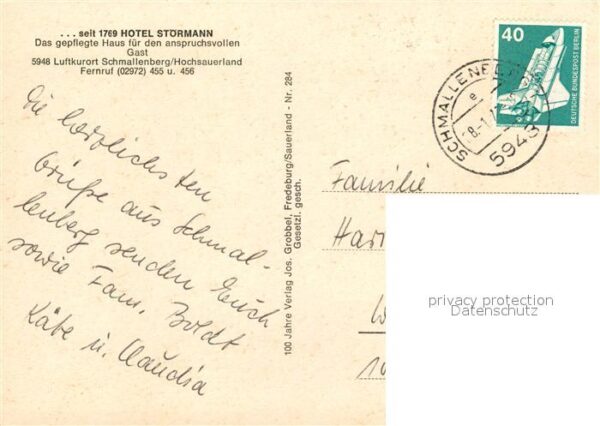 . . . seit 1769 HOTEL STÖRMANN
Das gepflegte Haus für den anspruchsvollen
Gast
5948 Luftkurort Schmallenberg/Hochsauerland
Fernruf (02972) 455 u. 456
Die herzlichsten
Grüße aus Schmal-
lenberg senden Euch
sowie Fam. Boldt
Käte u. Claudia
100 Jahre Verlag Jos. Grobbel, Fredeburg/Sauerland - Nr. 284
Gesetzl. gesch.
40
DEUTSCHE BUNDESPOST BERLIN
e
5948
Familie
privacy protection
Datenschutz